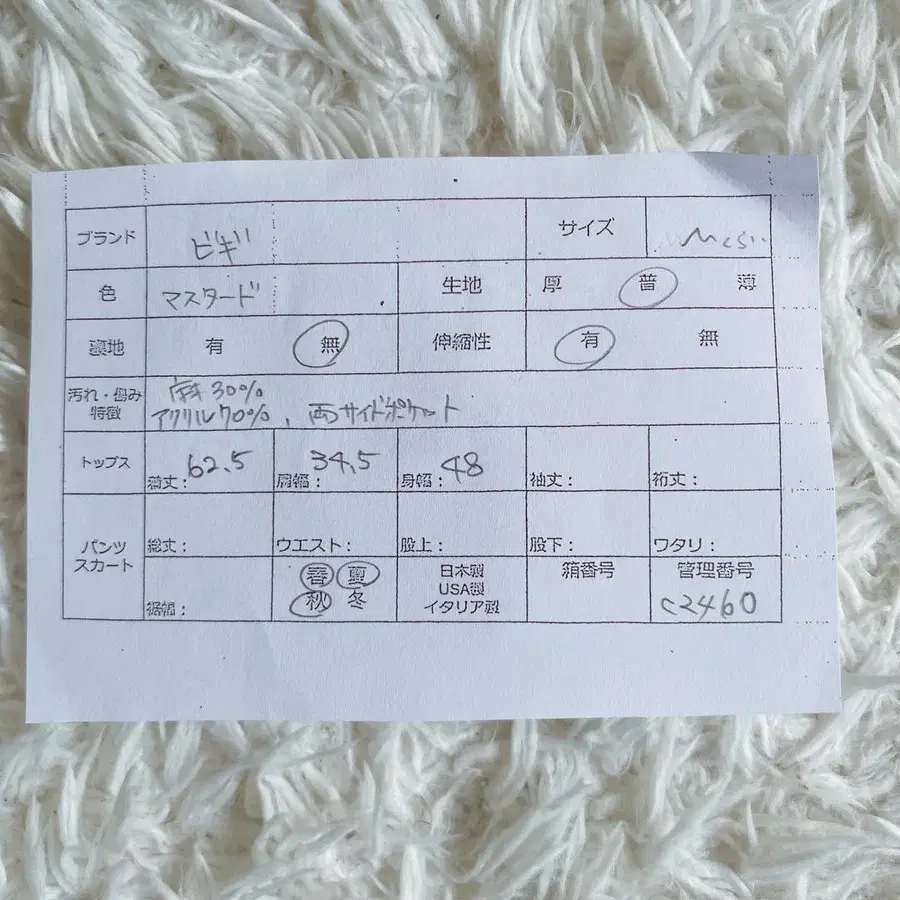 ブランド ビギ サイズ M
色 マスタード 生地 厚 普 薄
裏地 有 無 伸縮性 有 無
汚れ・傷み 麻30%
特徴 アクリル70%、両サイドポケット
トップス 着丈：62.5 肩幅：34.5 身幅：48 袖丈： 裄丈：
パンツ スカート 総丈： ウエスト： 股上： 股下： ワタリ：
裾幅： 春 夏 秋 冬 日本製 USA製 イタリア製 箱番号 管理番号 C2460